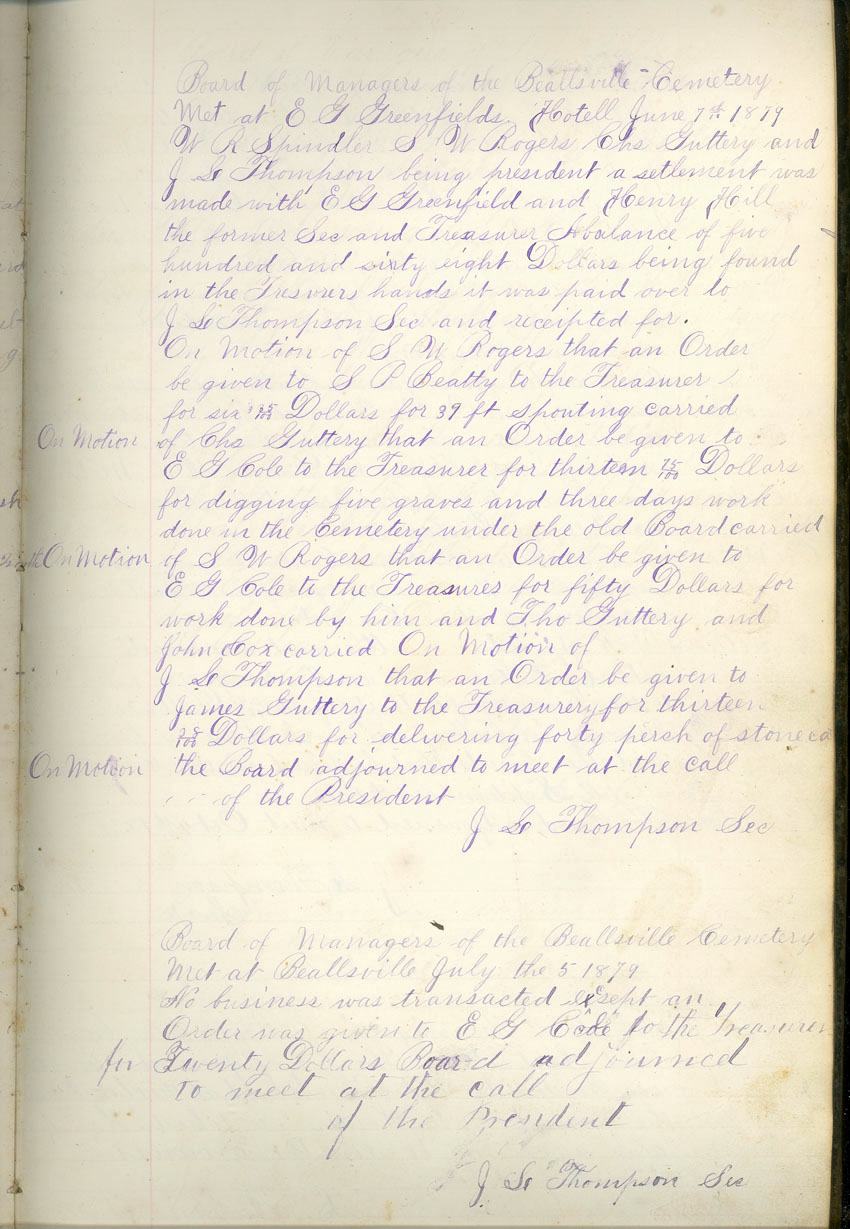 Board of Managers of the Beallsville Cemetery
Met at E G Greenfields Hotell June 7th 1879
W R Spindler S W Rogers Chs Guttery and
J S Thompson being president a setlement was
made with E G Greenfield and Henry Hill
the former Sec and Treasurer A balance of five
hundred and sixty eight Dollars being found
in the Tresurers hands it was paid over to
J S Thompson Sec and receipted for.
On Motion of S W Rogers that an Order
be given to S P Beatty to the Treasurer
for six 35/100 Dollars for 39 ft spouting carried
On Motion of Chs Guttery that an Order be given to
E G Cole to the Treasurer for thirteen 75/100 Dollars
for digging five graves and three days work
done in the Cemetery under the old Board carried
On Motion of S W Rogers that an Order be given to
E G Cole to the Treasures for fifty Dollars for
work done by him and Tho Guttery and
John Cox carried On Motion of
J S Thompson that an Order be given to
James Guttery to the Treasurery for thirteen
Dollars for delivering forty persh of stone ca
On Motion the Board adjourned to meet at the call
of the President
J S Thompson Sec
Board of Managers of the Beallsville Cemetery
Met at Beallsville July the 5 1879
No business was transacted exsept an
Order was given to E G Cole to the Treasurer
for Twenty Dollars Board adjourned
to meet at the call
of the President
J S Thompson Sec